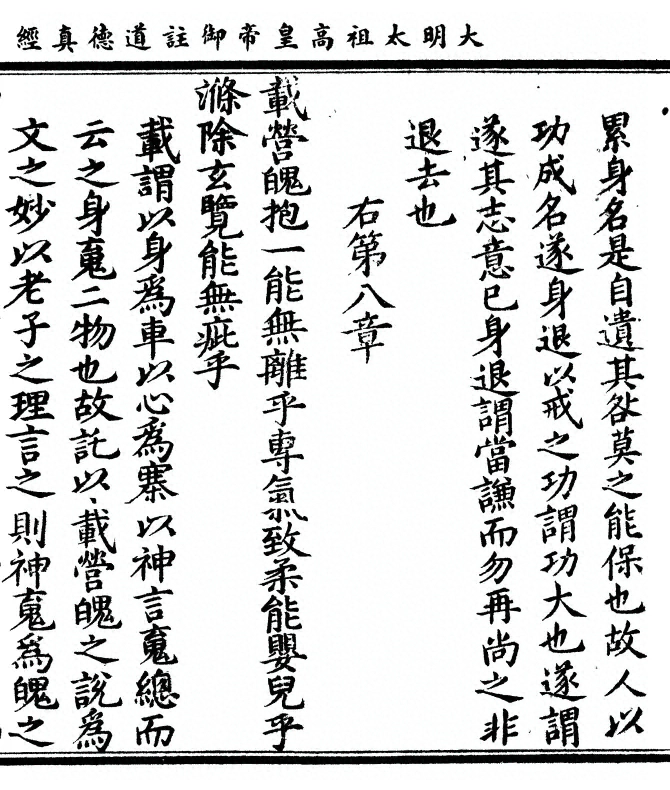 大明太祖高皇帝御註道德真經
累身名是自遺其咎莫之能保也故人以
功成名遂身退以戒之功謂功大也遂謂
遂其志意已身退謂當謙而勿再尚之非
退去也
右第八章
載營魄抱一能無離乎專氣致柔能嬰兒乎
滌除玄覽能無疵乎
載謂以身爲車以心爲寨以神言䰟總而
云之身䰟二物也故託以載營魄之說爲
文之妙以老子之理言之則神䰟爲魄之